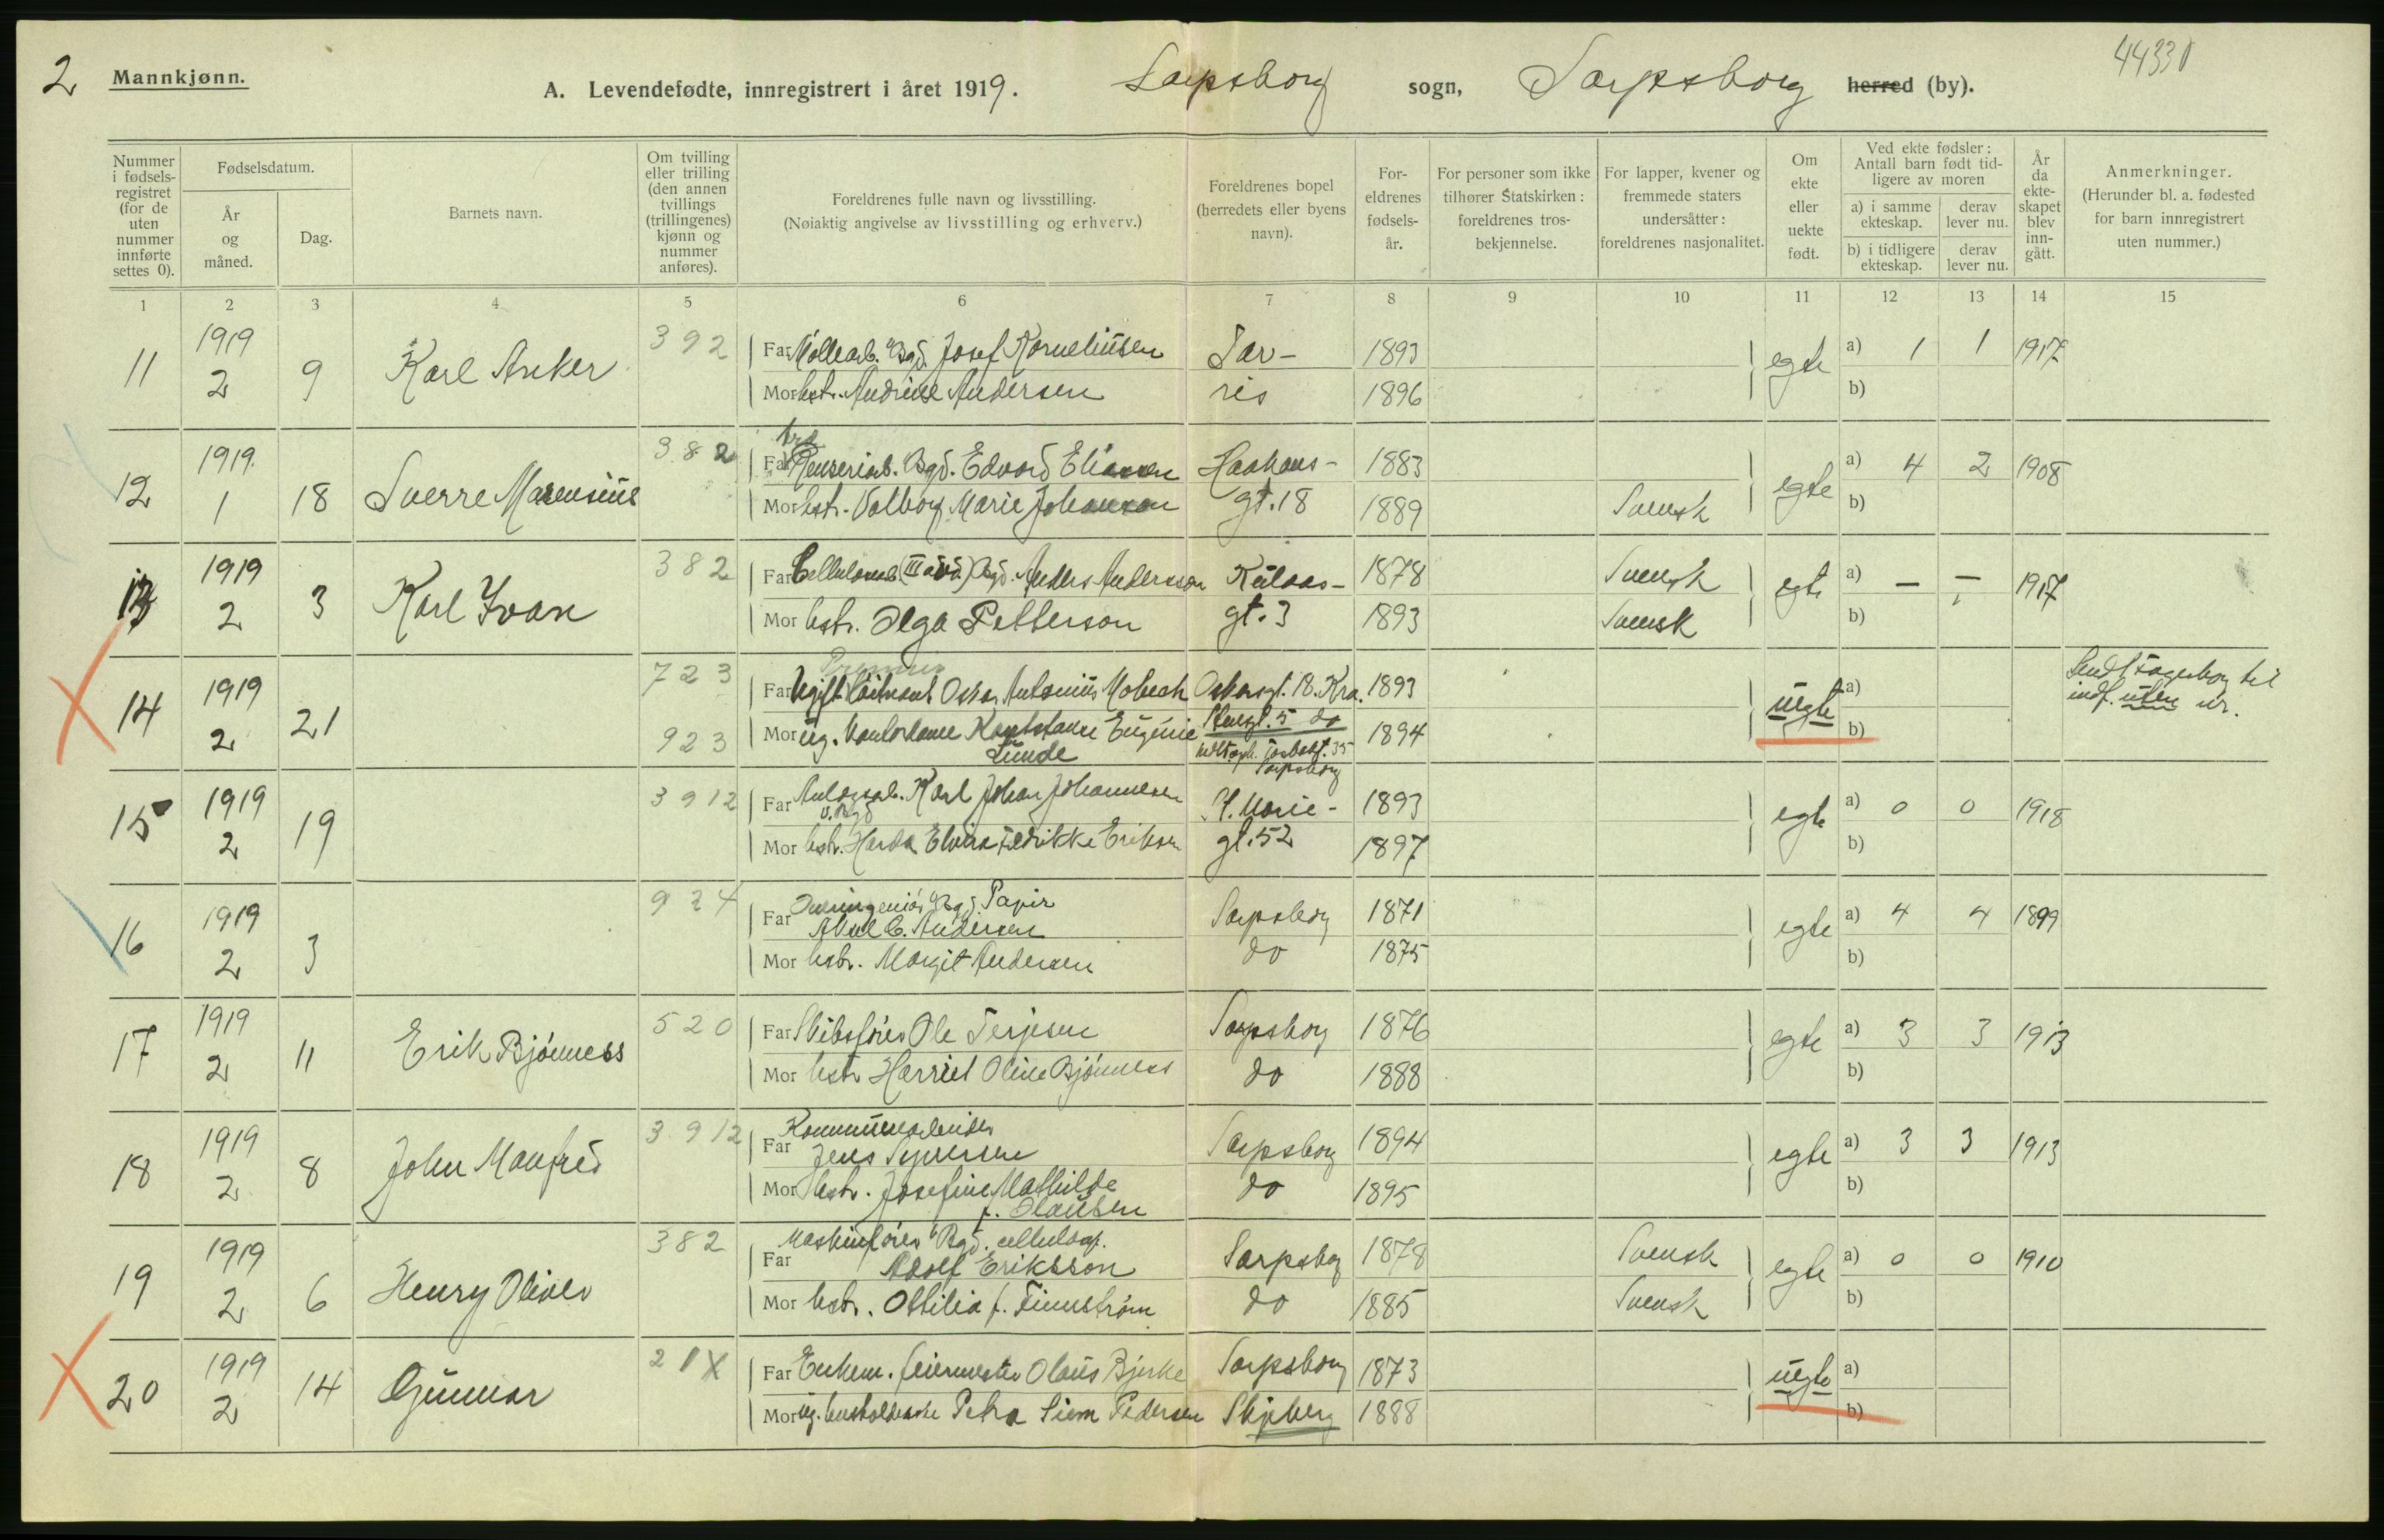 2 Mannkjønn.
A. Levendefødte, innregistrert i året 1919. Sarpsborg sogn, Sarpsborg herred (by). 44330
Nummer i fødsels-registret (for de uten nummer innførte settes 0).
Fødselsdatum.
År og måned.
Dag.
Barnets navn.
Om tvilling eller trilling (den annen tvillings (trillingenes) kjønn og nummer anføres).
Foreldrenes fulle navn og livsstilling.
(Nøiaktig angivelse av livsstilling og erhverv.)
Foreldrenes bopel (herredets eller byens navn).
For-eldrenes fødsels-år.
For personer som ikke tilhører Statskirken: foreldrenes tros-bekjennelse.
For lapper, kvener og fremmede staters undersåtter: foreldrenes nasjonalitet.
Om ekte eller uekte født.
Ved ekte fødsler: Antall barn født tid-ligere av moren
a) i samme ekteskap.
derav lever nu.
b) i tidligere ekteskap.
derav lever nu.
År da ekte-skapet blev inn-gått.
Anmerkninger.
(Herunder bl. a. fødested for barn innregistrert uten nummer.)
1 2 3 4 5 6 7 8 9 10 11 12 13 14 15
11 1919 2 9 Karl Anker 392 Far Møllearb. Bgd. Josef Korneliusen Sar- 1893 egte a) 1 1 1917
Mor hstr. Andrine Andersen ris 1896 b)
12 1919 1 18 Sverre Marensius 382 Far Renseriarb. Bgd. Edvard Eliassen Haakons- 1883 egte a) 4 2 1908
Mor hstr. Valborg Marie Johansson gt. 18 1889 Svensk b)
13 1919 2 3 Karl Ivan 382 Far Cellulosearb. Bgd. Anders Andersson Kulaas- 1878 Svensk egte a) — — 1917
Mor hstr. Olga Petterson gt. 3 1893 Svensk b)
14 1919 2 21 723 Far Ugift Løitnant Oskar Antonius Mobech Oskarsgt. 18. Kra. 1893 uegte a)
923 Mor ug. Kontordame Konstance Eugenie Lunde Stensgt. 5 do 1894 b)
Sarpsborg
indf. uten nr.
15 1919 2 19 3912 Far Anlægsarb. Karl Johan Johannesen St. Marie- 1893 egte a) 0 0 1918
v. Bgd
Mor hstr. Harda Elvira Fredrikke Eriksen gt. 52 1897 b)
16 1919 2 3 924 Far Overingeniør Bgd. Papir Sarpsborg 1871 egte a) 4 4 1899
Abel C. Andersen
Mor hstr. Margit Andersen do 1875 b)
17 1919 2 11 Erik Bjønness 520 Far Skibsfører Ole Terjesen Sarpsborg 1876 egte a) 3 3 1913
Mor hstr. Harriet Oline Bjønness do 1888 b)
18 1919 2 8 John Manfred 3912 Far Kommunearbeider Sarpsborg 1894 egte a) 3 3 1913
Jens Syversen
Mor hstr. Josefine Mathilde do 1895 b)
f. Olausen
19 1919 2 6 Henry Oliver 382 Far Maskinfører Bgd. cellulosef. Sarpsborg 1878 Svensk egte a) 0 0 1910
Adolf Eriksson
Mor hstr. Ottilia f. Finnström do 1885 Svensk b)
20 1919 2 14 Gunnar 21X Far Enkem. feiermester Olaus Bjerke Sarpsborg 1873 uegte a)
Mor ug. husholderske Petra Siem Pedersen Skjeberg 1888 b)